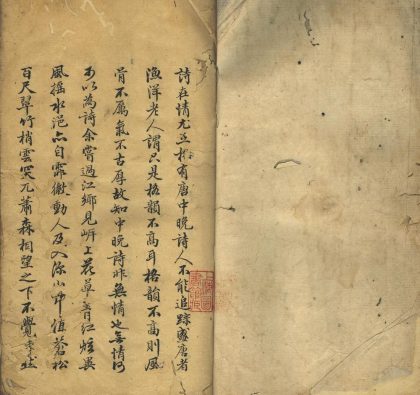 詩在情尤在格有唐中晚詩人不能追踪盛唐者
漁洋老人謂只是格韻不高耳格韻不高則風
骨不厲氣不古厚故知中晚詩非無情也無情何
以為詩余嘗過江鄉見岍上花草青紅炫異
風搖水浥亦自霏微動人及入深山中恆蒼松
百尺翠竹梢雲突兀蕭森相望之下不覺